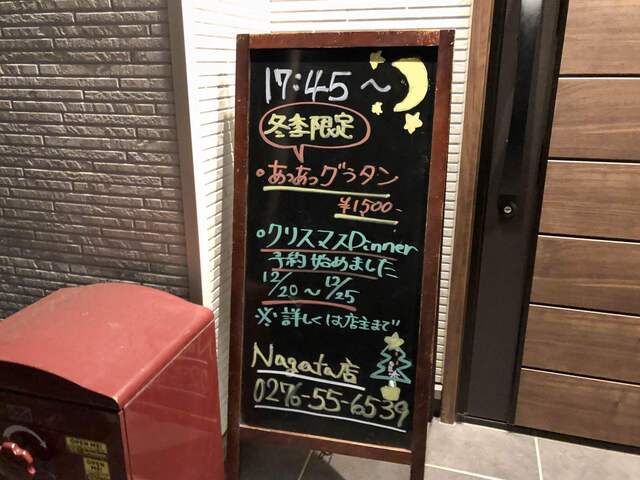 17:45〜
冬季限定
•あつあつグラタン
¥1500-
•クリスマスDinner
予約始めました
12/20〜12/25
※詳しくは店主まで
Nagata店
0276-55-6539
OPEN ME!
OPEN ME!